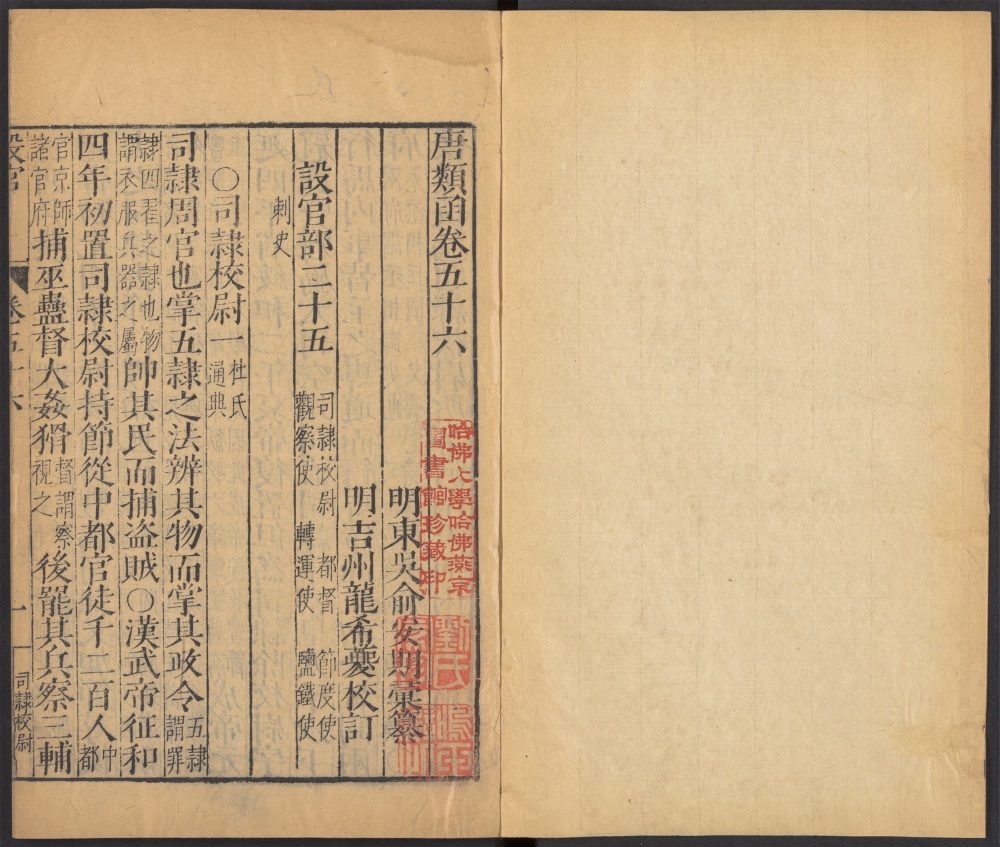 唐類函卷五十六
明東吳俞安期彙纂
明吉州龍希夔校訂
設官部二十五
司隷校尉 都督 節度使
觀察使 轉運使 鹽鐵使
刺史
〇司隷校尉一
杜氏
通典
司隷周官也掌五隷之法辨其物而掌其政令
五隷
謂罪
隷四翟之隷也物
謂衣服兵器之屬
帥其民而捕盜賊〇漢武帝征和
四年初置司隷校尉持節從中都官徒千二百人
中
都
官京師
諸官府
捕巫蠱督大姦猾
督謂察
視之
後罷其兵察三輔
設官
卷五十六
一
司隷校尉
哈佛大學哈佛燕京
圖書館珍藏印
劉氏